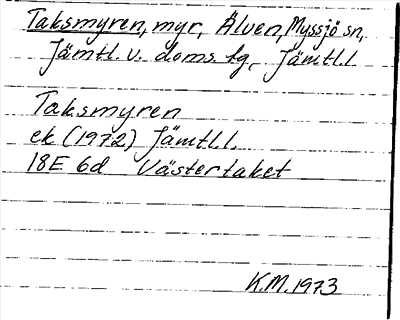 Taksmyren, myr, Älven, Myssjö sn,
Jämtl. v. doms. tg, Jämtl.l
Taksmyren
ek (1972) Jämtl.l.
18E 6d Västertaket
K.M. 1973